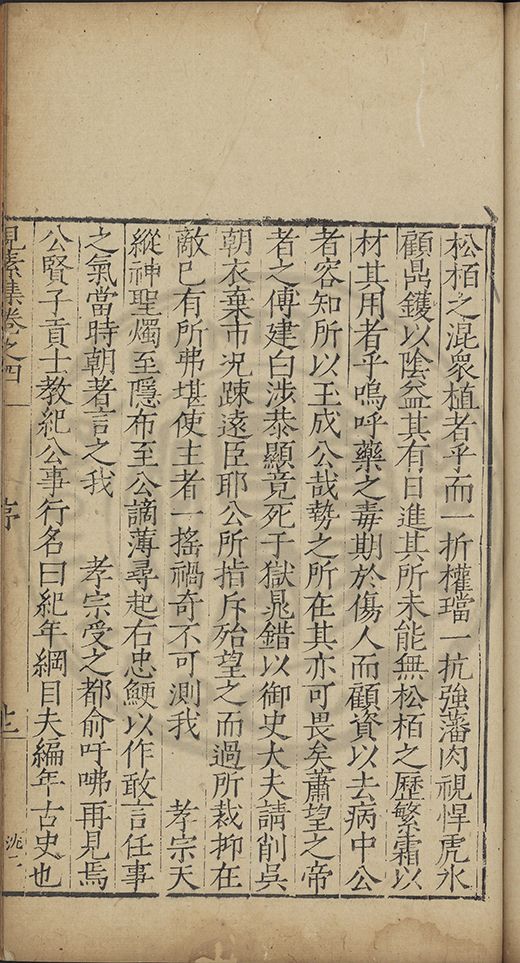 松栢之混衆植者乎而一折權璫一抗強藩肉視悍虎水
顧鼎鑊以陰益其有日進其所未能無松栢之歷繁霜以
材其用者乎嗚呼藥之毒期於傷人而顧資以去病中公
者容知所以玉成公哉勢之所在其亦可畏矣蕭望之帝
者之傅建白涉恭顯竟死于獄晁錯以御史大夫請削吳
朝衣棄市况踈遠臣耶公所指斥殆望之而過所裁抑在
敵已有所弗堪使主者一搖禍奇不可測我 孝宗天
縱神聖燭至隱布至公謫薄尋起右忠鯁以作敢言任事
之氣當時朝者言之我 孝宗受之都俞吁咈再見焉
公賢子貢士教紀公事行名曰紀年綱目夫編年古史也
見素集卷之四
序